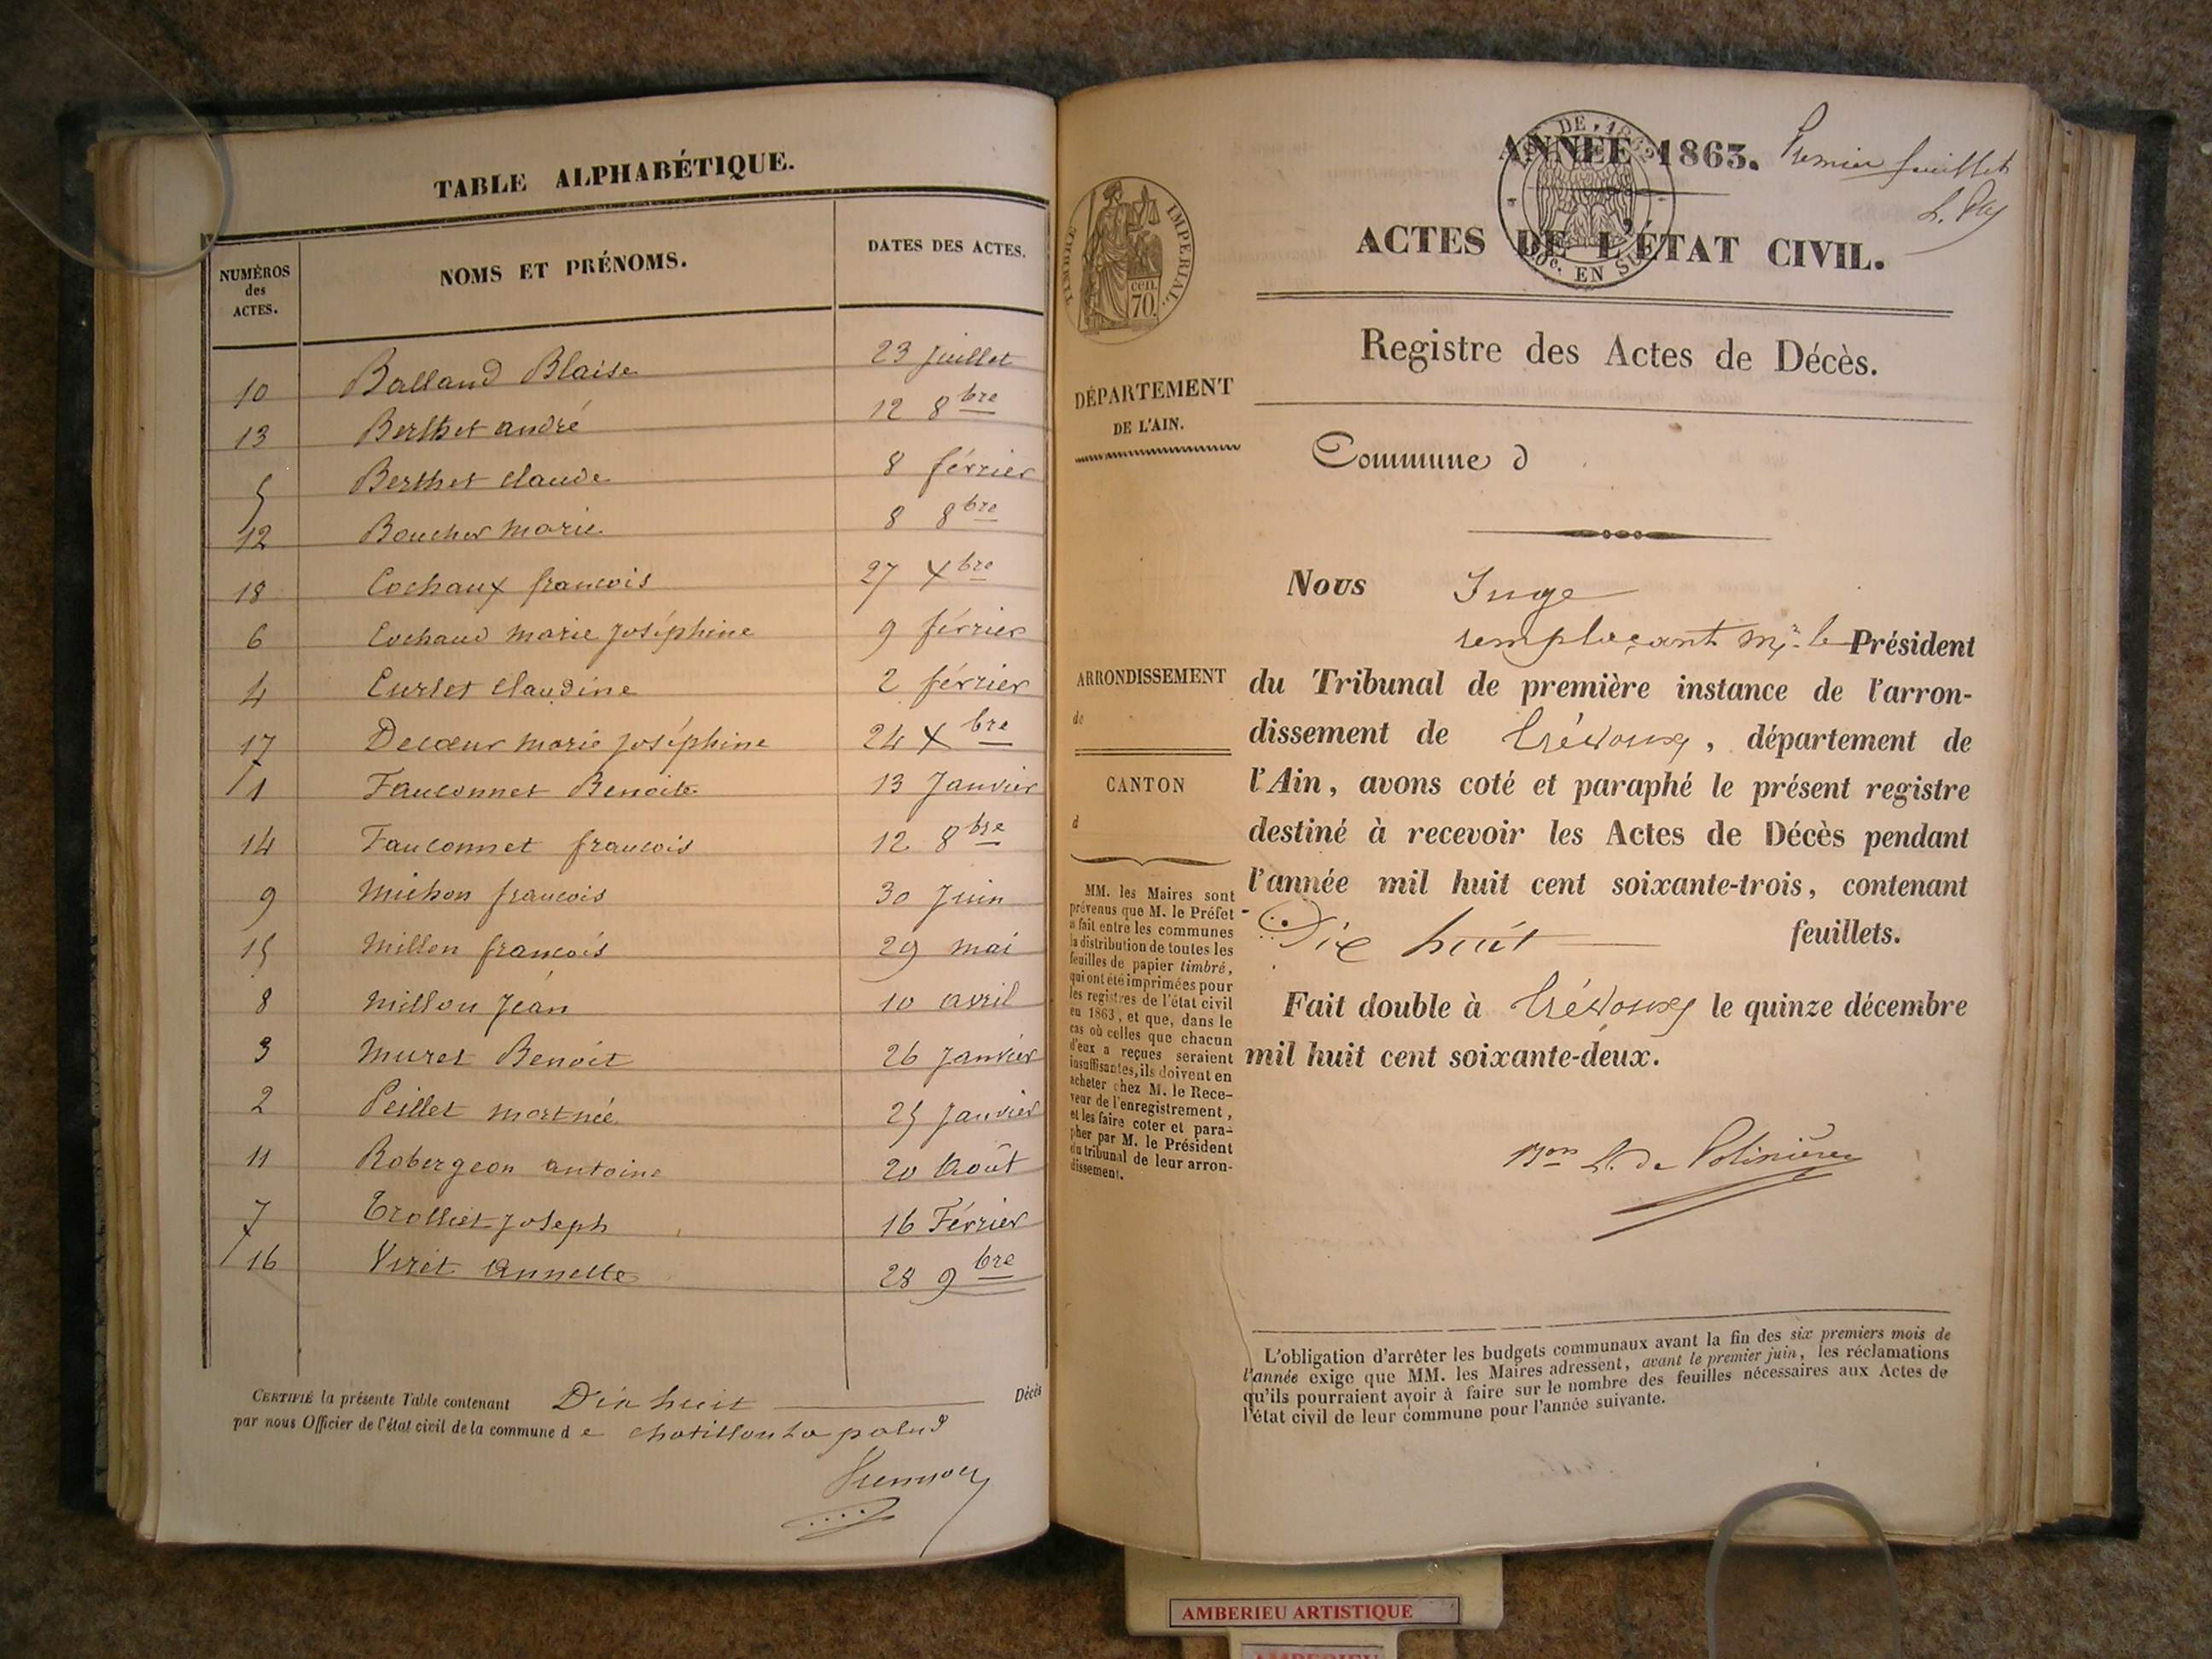 TABLE ALPHABÉTIQUE.
NUMÉROS des ACTES. NOMS ET PRÉNOMS. DATES DES ACTES.
10 Balland Blaise 23 juillet
13 Berthet andré 12 8bre
5 Berthet claude 8 février
12 Boucher marie 8 8bre
18 Cochaux francois 27 Xbre
6 Cochaud marie joséphine 9 février
4 Curlet claudine 2 février
17 Decœur marie joséphine 24 Xbre
1 Fauconnet Benoite 13 Janvier
14 Fauconnet francois 12 8bre
9 Michon francois 30 Juin
15 Millon francois 29 mai
8 Millon Jean 10 avril
3 Muret Benoit 26 Janvier
2 Peillet mort née 25 Janvier
11 Robergeon antoine 20 Août
7 Trolliet joseph 16 Février
16 Viret Annette 28 9bre
CERTIFIÉ la présente Table contenant Dix huit Décès
par nous Officier de l'état civil de la commune de chatillon La palud
ANNÉE 1863.
Premier feuillet
TIMBRE IMPERIAL.
cen. 70.
ACTES DE L'ÉTAT CIVIL.
Registre des Actes de Décès.
DÉPARTEMENT
DE L'AIN.
Commune d
Nous Juge
remplaçant Mr. le Président
ARRONDISSEMENT
de
du Tribunal de première instance de l'arron-
dissement de Trévoux, département de
CANTON
d
l'Ain, avons coté et paraphé le présent registre
destiné à recevoir les Actes de Décès pendant
l'année mil huit cent soixante-trois, contenant
Dix huit feuillets.
Fait double à Trévoux le quinze décembre
mil huit cent soixante-deux.
Bon L. de Polinière
MM. les Maires sont
prévenus que M. le Préfet
a fait entre les communes
la distribution de toutes les
feuilles de papier timbré,
qui ont été imprimées pour
les registres de l'état civil
en 1863, et que, dans le
cas où celles que chacun
d'eux a reçues seraient
insuffisantes, ils doivent en
acheter chez M. le Rece-
veur de l'enregistrement,
et les faire coter et para-
pher par M. le Président
du tribunal de leur arron-
dissement.
L'obligation d'arrêter les budgets communaux avant la fin des six premiers mois de
l'année exige que MM. les Maires adressent, avant le premier juin, les réclamations
qu'ils pourraient avoir à faire sur le nombre des feuilles nécessaires aux Actes de
l'état civil de leur commune pour l'année suivante.
AMBERIEU ARTISTIQUE
AMBERIEU